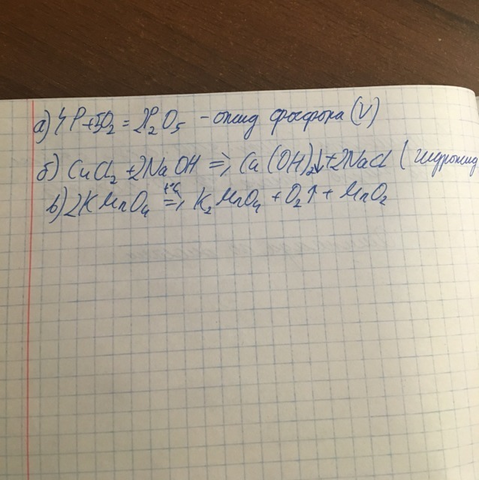 а) 4P+5O₂ = 2P₂O₅ - оксид фосфора (V)
б) CuCl₂ + 2NaOH => Cu(OH)₂↓ + 2NaCl (гидроксид
в) 2KMnO₄ t°C => K₂MnO₄ + O₂↑ + MnO₂